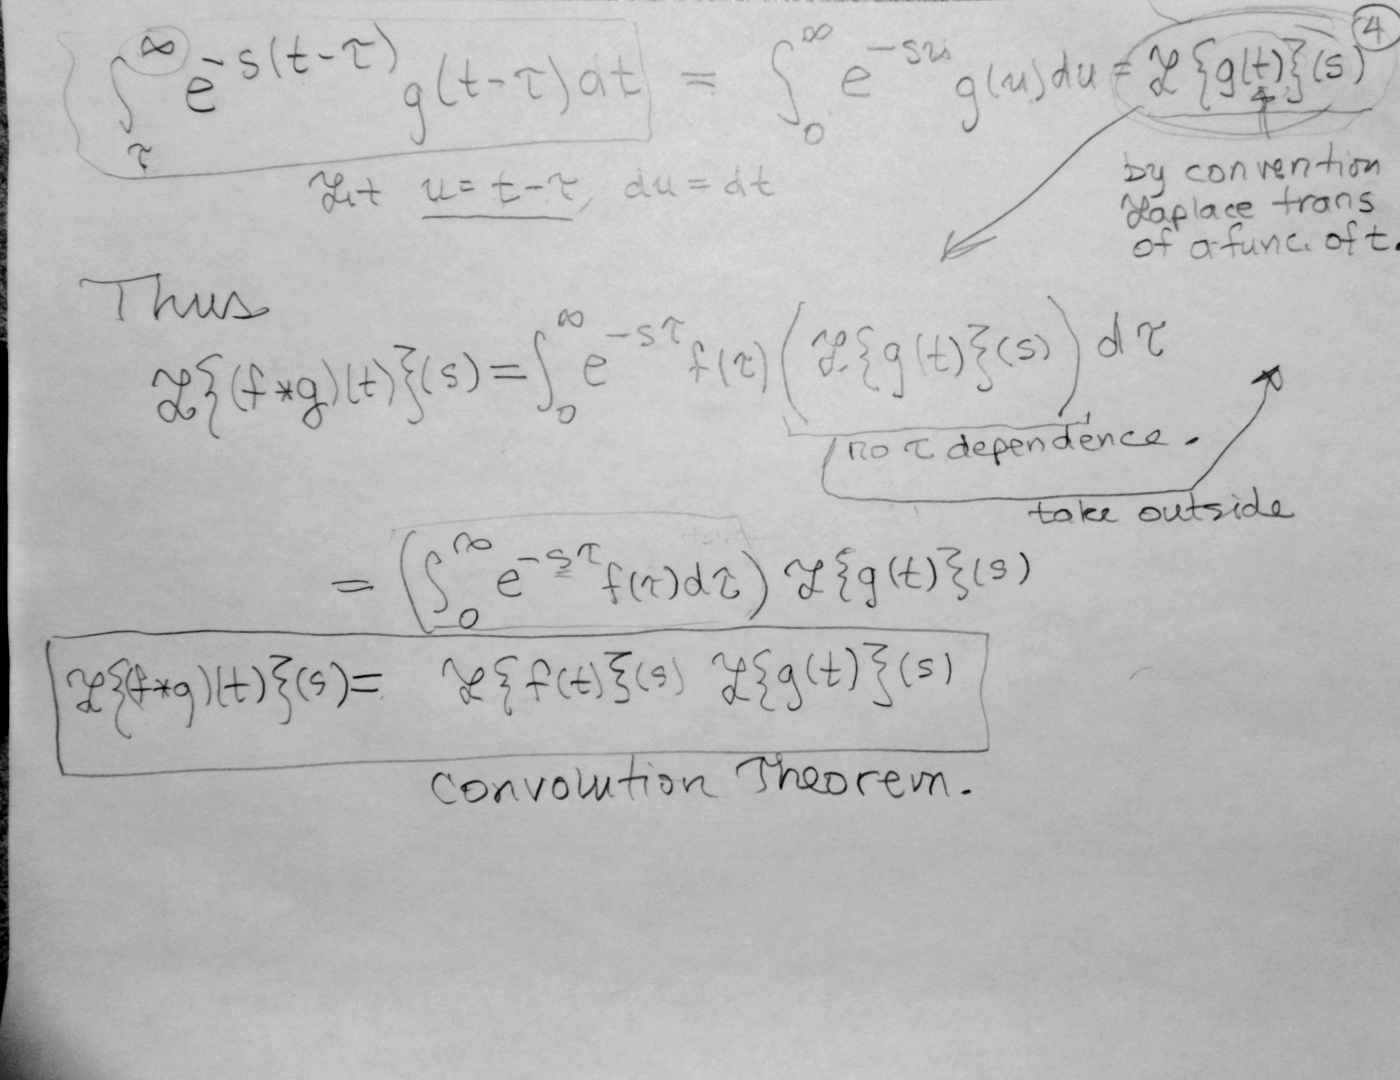 ④
∫_τ^∞ e^{-s(t-τ)} g(t-τ)dt = ∫_0^∞ e^{-su} g(u)du = ℒ{g(t)}(s)
Let u = t-τ, du = dt
by convention
Laplace trans
of a func. of t.
Thus
ℒ{(f*g)(t)}(s) = ∫_0^∞ e^{-sτ} f(τ) (ℒ{g(t)}(s)) dτ
no τ dependence.
take outside
= (∫_0^∞ e^{-sτ} f(τ)dτ) ℒ{g(t)}(s)
ℒ{(f*g)(t)}(s) = ℒ{f(t)}(s) ℒ{g(t)}(s)
Convolution Theorem.